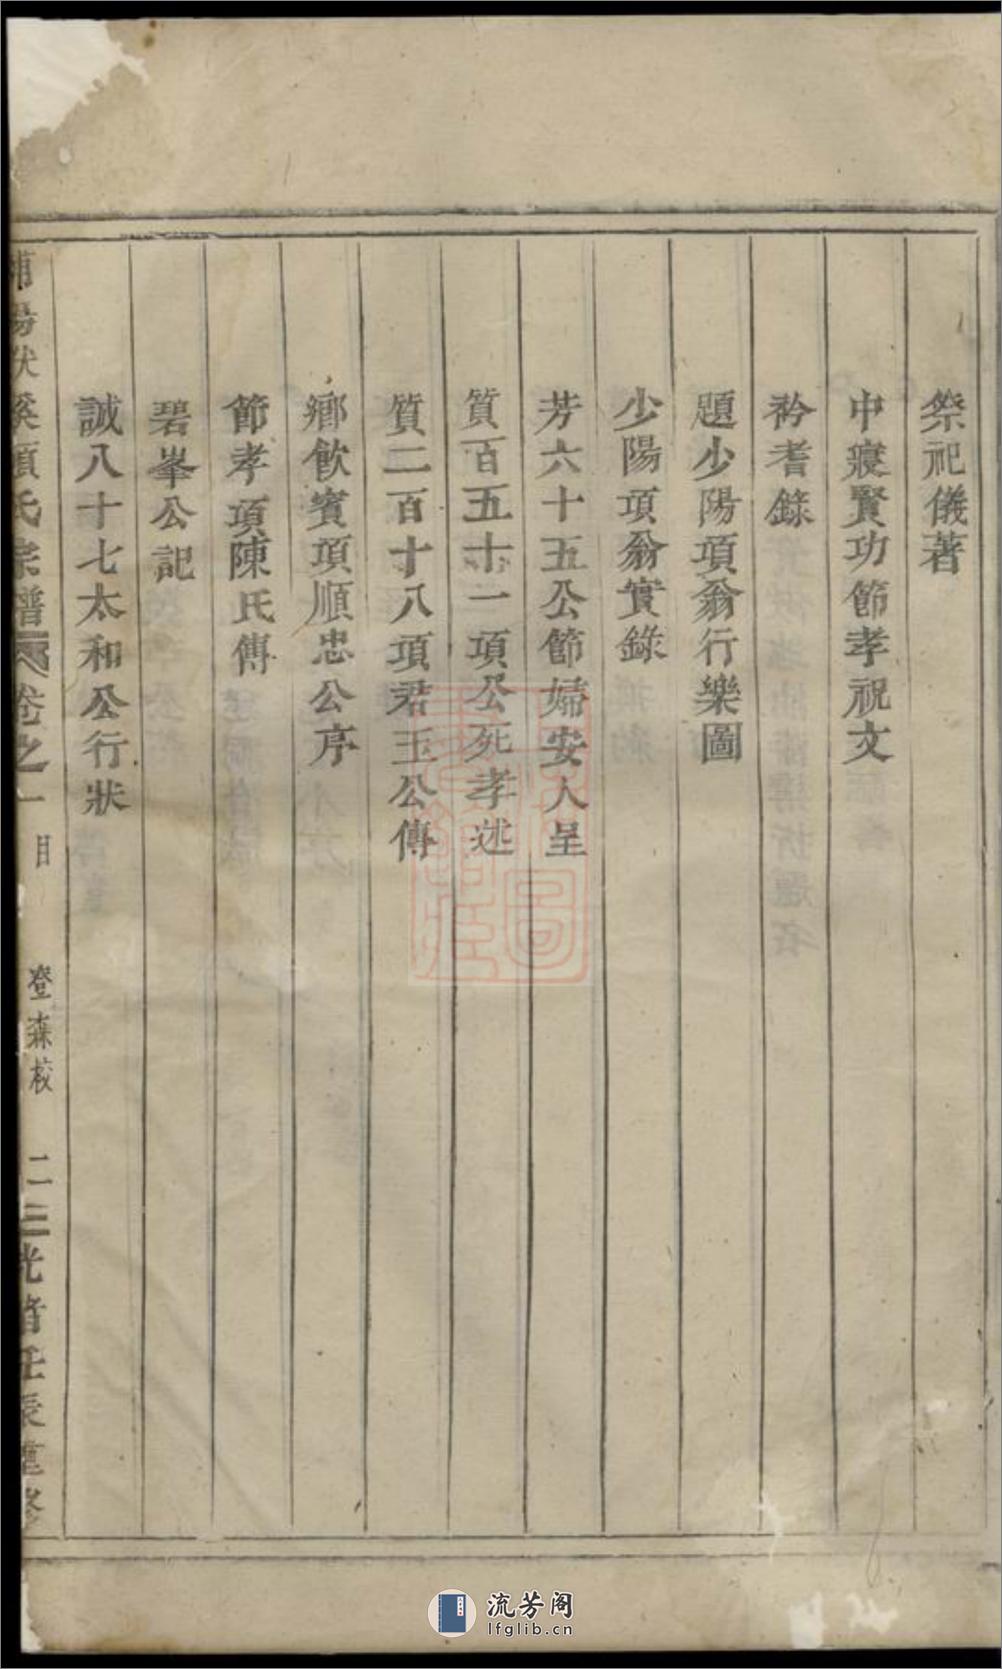 祭祀儀著
中寢賢功節孝祝文
衿耆錄
題少陽項翁行樂圖
少陽項翁實錄
芳六十五公節婦安人呈
質百五十一項公死孝述
質二百十八項君玉公傳
鄉飲賓項順忠公序
節孝項陳氏傳
碧峯公記
誠八十七太和公行狀
浦陽伏溪項氏宗譜 卷之一 目 登森校 二 三 光緒壬辰重修
流芳阁
lfglib.cn